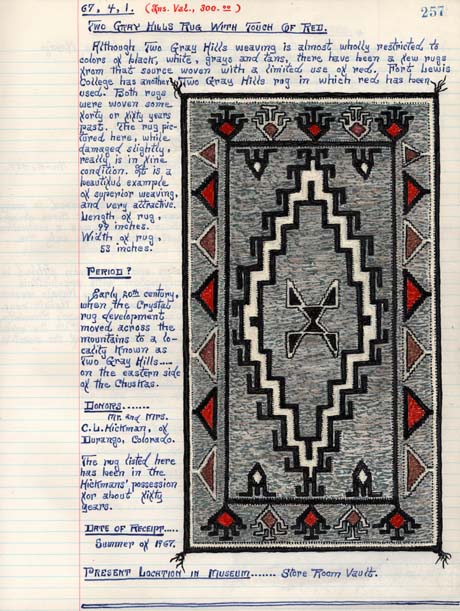 67, 4, 1. (Ins. Val., 300.00) 257
Two Gray Hills Rug With Touch Of Red.
Although Two Gray Hills weaving is almost wholly restricted to
colors of black, white, grays and tans, there have been a few rugs
from that source woven with a limited use of red. Fort Lewis
College has another Two Gray Hills rug in which red has been
used. Both rugs
were woven some
forty or fifty years
past. The rug pic-
tured here, while
damaged slightly,
really is in fine
condition. It is a
beautiful example
of superior weaving,
and very attractive.
Length of rug,
inches.
Width of rug,
53 inches.
Period?
Early 20th century,
when the Crystal
rug development
moved across the
mountains to a lo-
cality known as
Two Gray Hills....
on the eastern side
of the Chuskas.
Donors.......
Mr. and Mrs.
C. L. Hickman, of
Durango, Colorado.
The rug listed here
has been in the
Hickmans' possession
for about fifty
years.
Date of Receipt.....
Summer of 1967.
Present Location in Museum....... Store Room Vault.